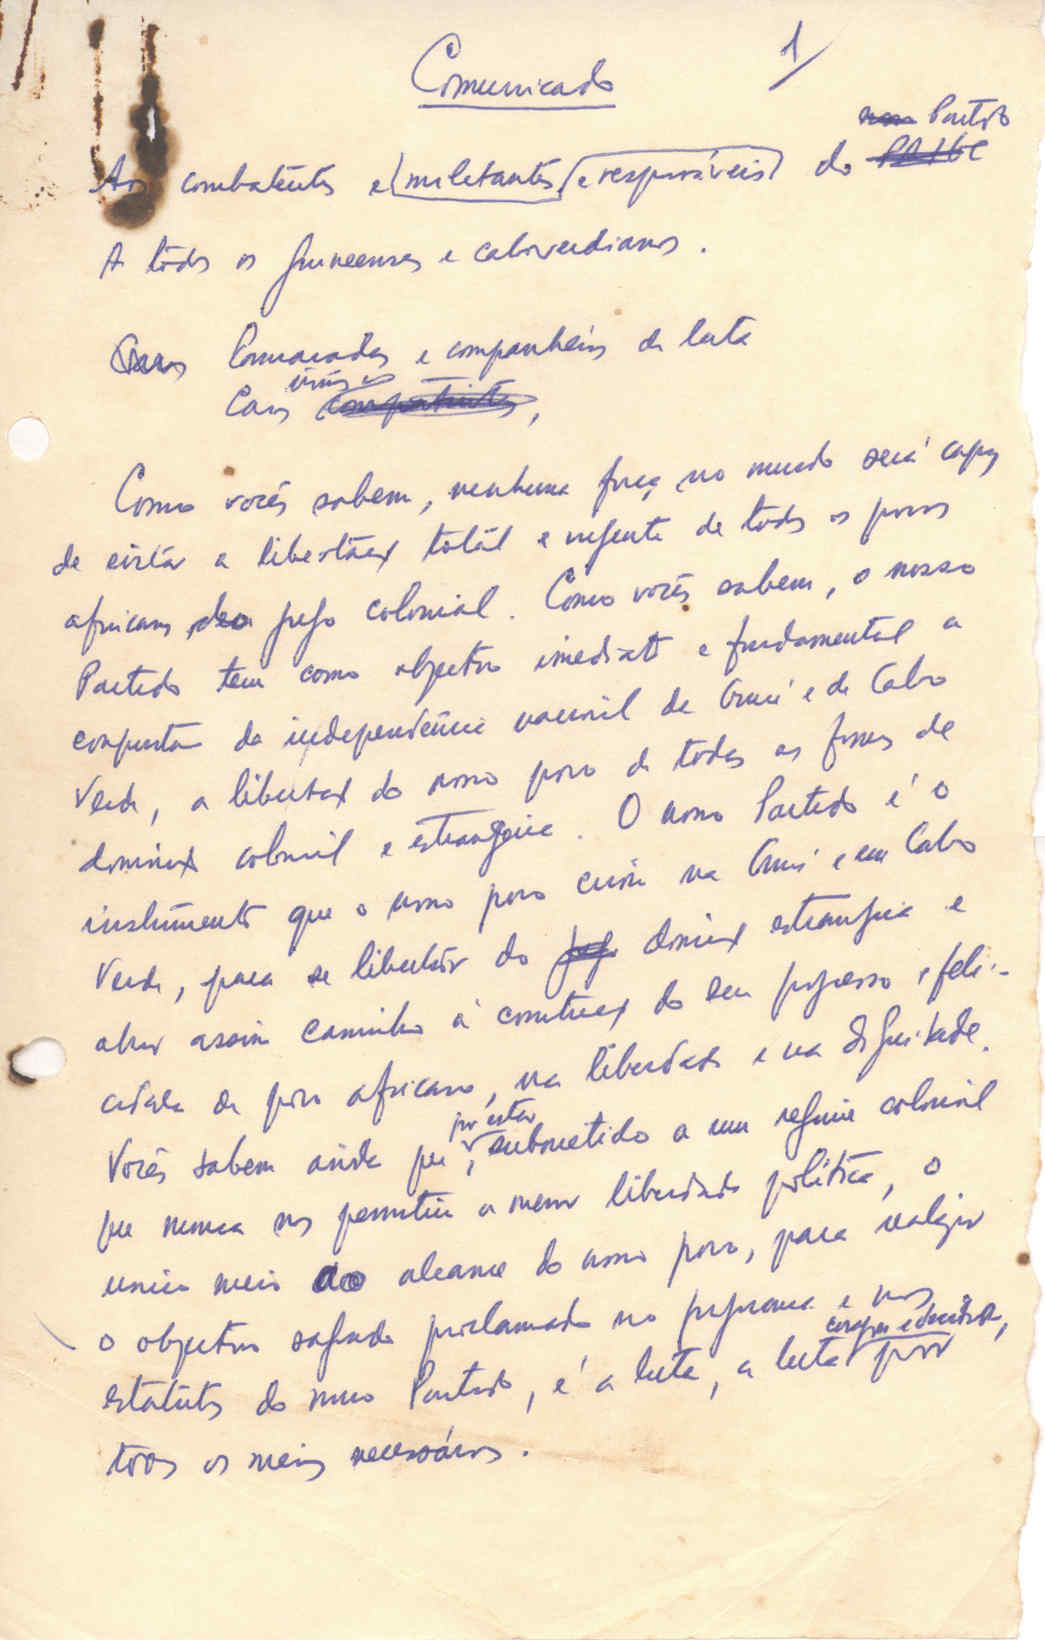 Comunicado 1/
nosso Partido
Aos combatentes e militantes e responsáveis do PAIGC
A todos os guineenses e caboverdianos.
Caros Camaradas e companheiros de luta
irmãos
Caros compatriotas,
Como vocês sabem, nenhuma força no mundo será capaz
de evitar a libertação total e urgente de todos os povos
africanos do jugo colonial. Como vocês sabem, o nosso
Partido tem como objectivo imediato e fundamental a
conquista da independência nacional da Guiné e de Cabo
Verde, a libertação do nosso povo de todas as formas de
domínio colonial e estrangeiro. O nosso Partido é o
instrumento que o nosso povo criou na Guiné e em Cabo
Verde, para se libertar do jugo domínio estrangeiro e
abrir assim caminho à construção do seu progresso e feli-
cidade de povo africano, na liberdade e na dignidade.
por estar
Vocês sabem ainda que, submetido a um regime colonial
que nunca nos permitiu a menor liberdade política, o
unico meio ao alcance do nosso povo, para realizar
o objectivo sagrado proclamado no programa e nos
corajosa e decidida,
estatutos do nosso Partido, é a luta, a luta por
todos os meios necessários.